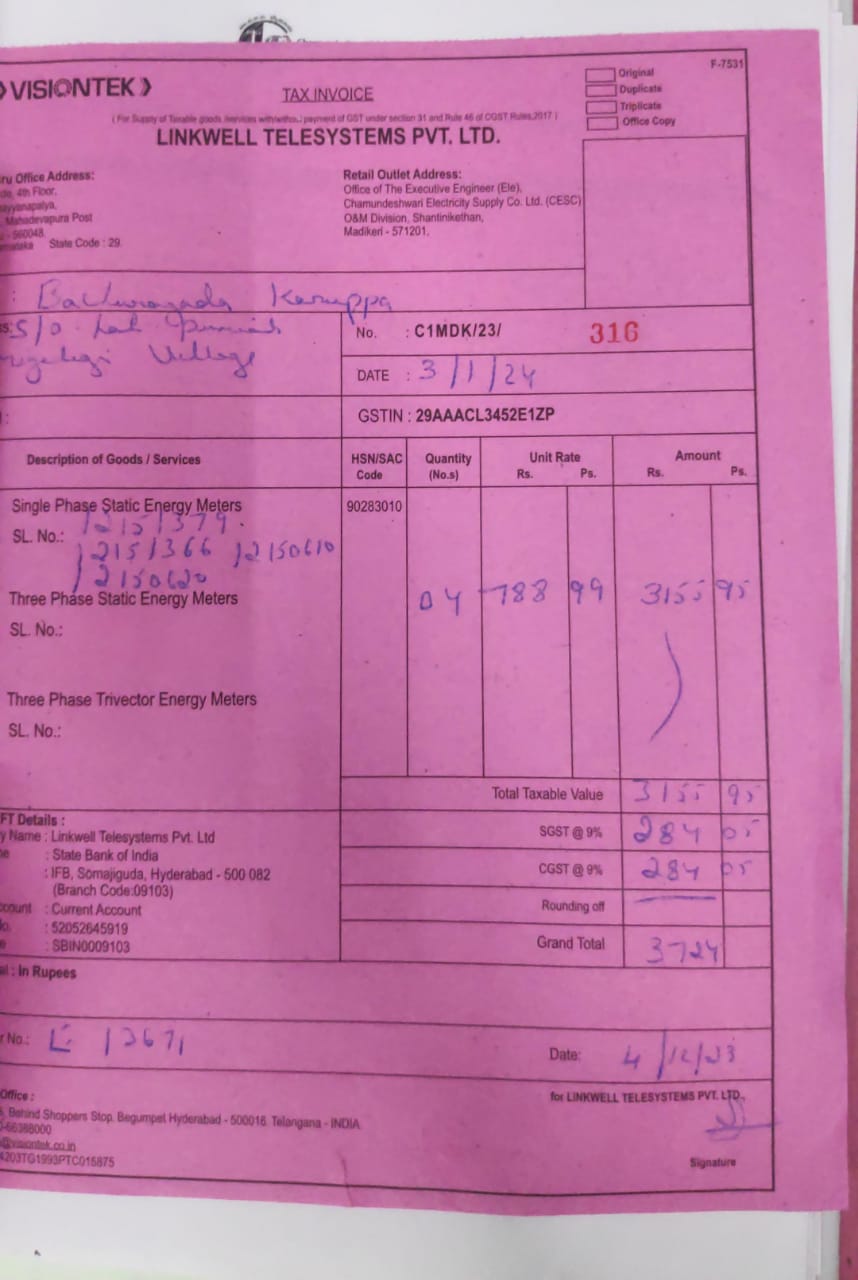 VISIONTEK
TAX INVOICE
Original
Duplicate
Triplicate
Office Copy
F-7531
( For Supply of Taxable goods /services with/without payment of GST under section 31 and Rule 46 of CGST Rules,2017 )
LINKWELL TELESYSTEMS PVT. LTD.
ru Office Address:
4th Floor,
Mahadevapura Post
- 560048.
State Code : 29
Retail Outlet Address:
Office of The Executive Engineer (Ele),
Chamundeshwari Electricity Supply Co. Ltd. (CESC)
O&M Division, Shantinikethan,
Madikeri - 571201.
: Karuppa
S/o Village
No. : C1MDK/23/ 316
DATE : 3/1/24
GSTIN : 29AAACL3452E1ZP
Description of Goods / Services HSN/SAC Code Quantity (No.s) Unit Rate Rs. Ps. Amount Rs. Ps.
Single Phase Static Energy Meters 90283010
12151379.
SL. No.:
12151366 12150610
12150620
Three Phase Static Energy Meters 04 788 99 3155 95
SL. No.:
Three Phase Trivector Energy Meters
SL. No.:
Total Taxable Value 3155 95
SGST @ 9% 284 05
CGST @ 9% 284 05
Rounding off
Grand Total 3724
FT Details :
y Name : Linkwell Telesystems Pvt. Ltd
: State Bank of India
: IFB, Somajiguda, Hyderabad - 500 082
(Branch Code:09103)
: Current Account
: 52052645919
: SBIN0009103
: In Rupees
No.: 13671
Date: 4/12/23
Office :
Behind Shoppers Stop, Begumpet Hyderabad - 500016. Telangana - INDIA.
-66388000
@visiontek.co.in
4203TG1993PTC015875
for LINKWELL TELESYSTEMS PVT. LTD.,
Signature